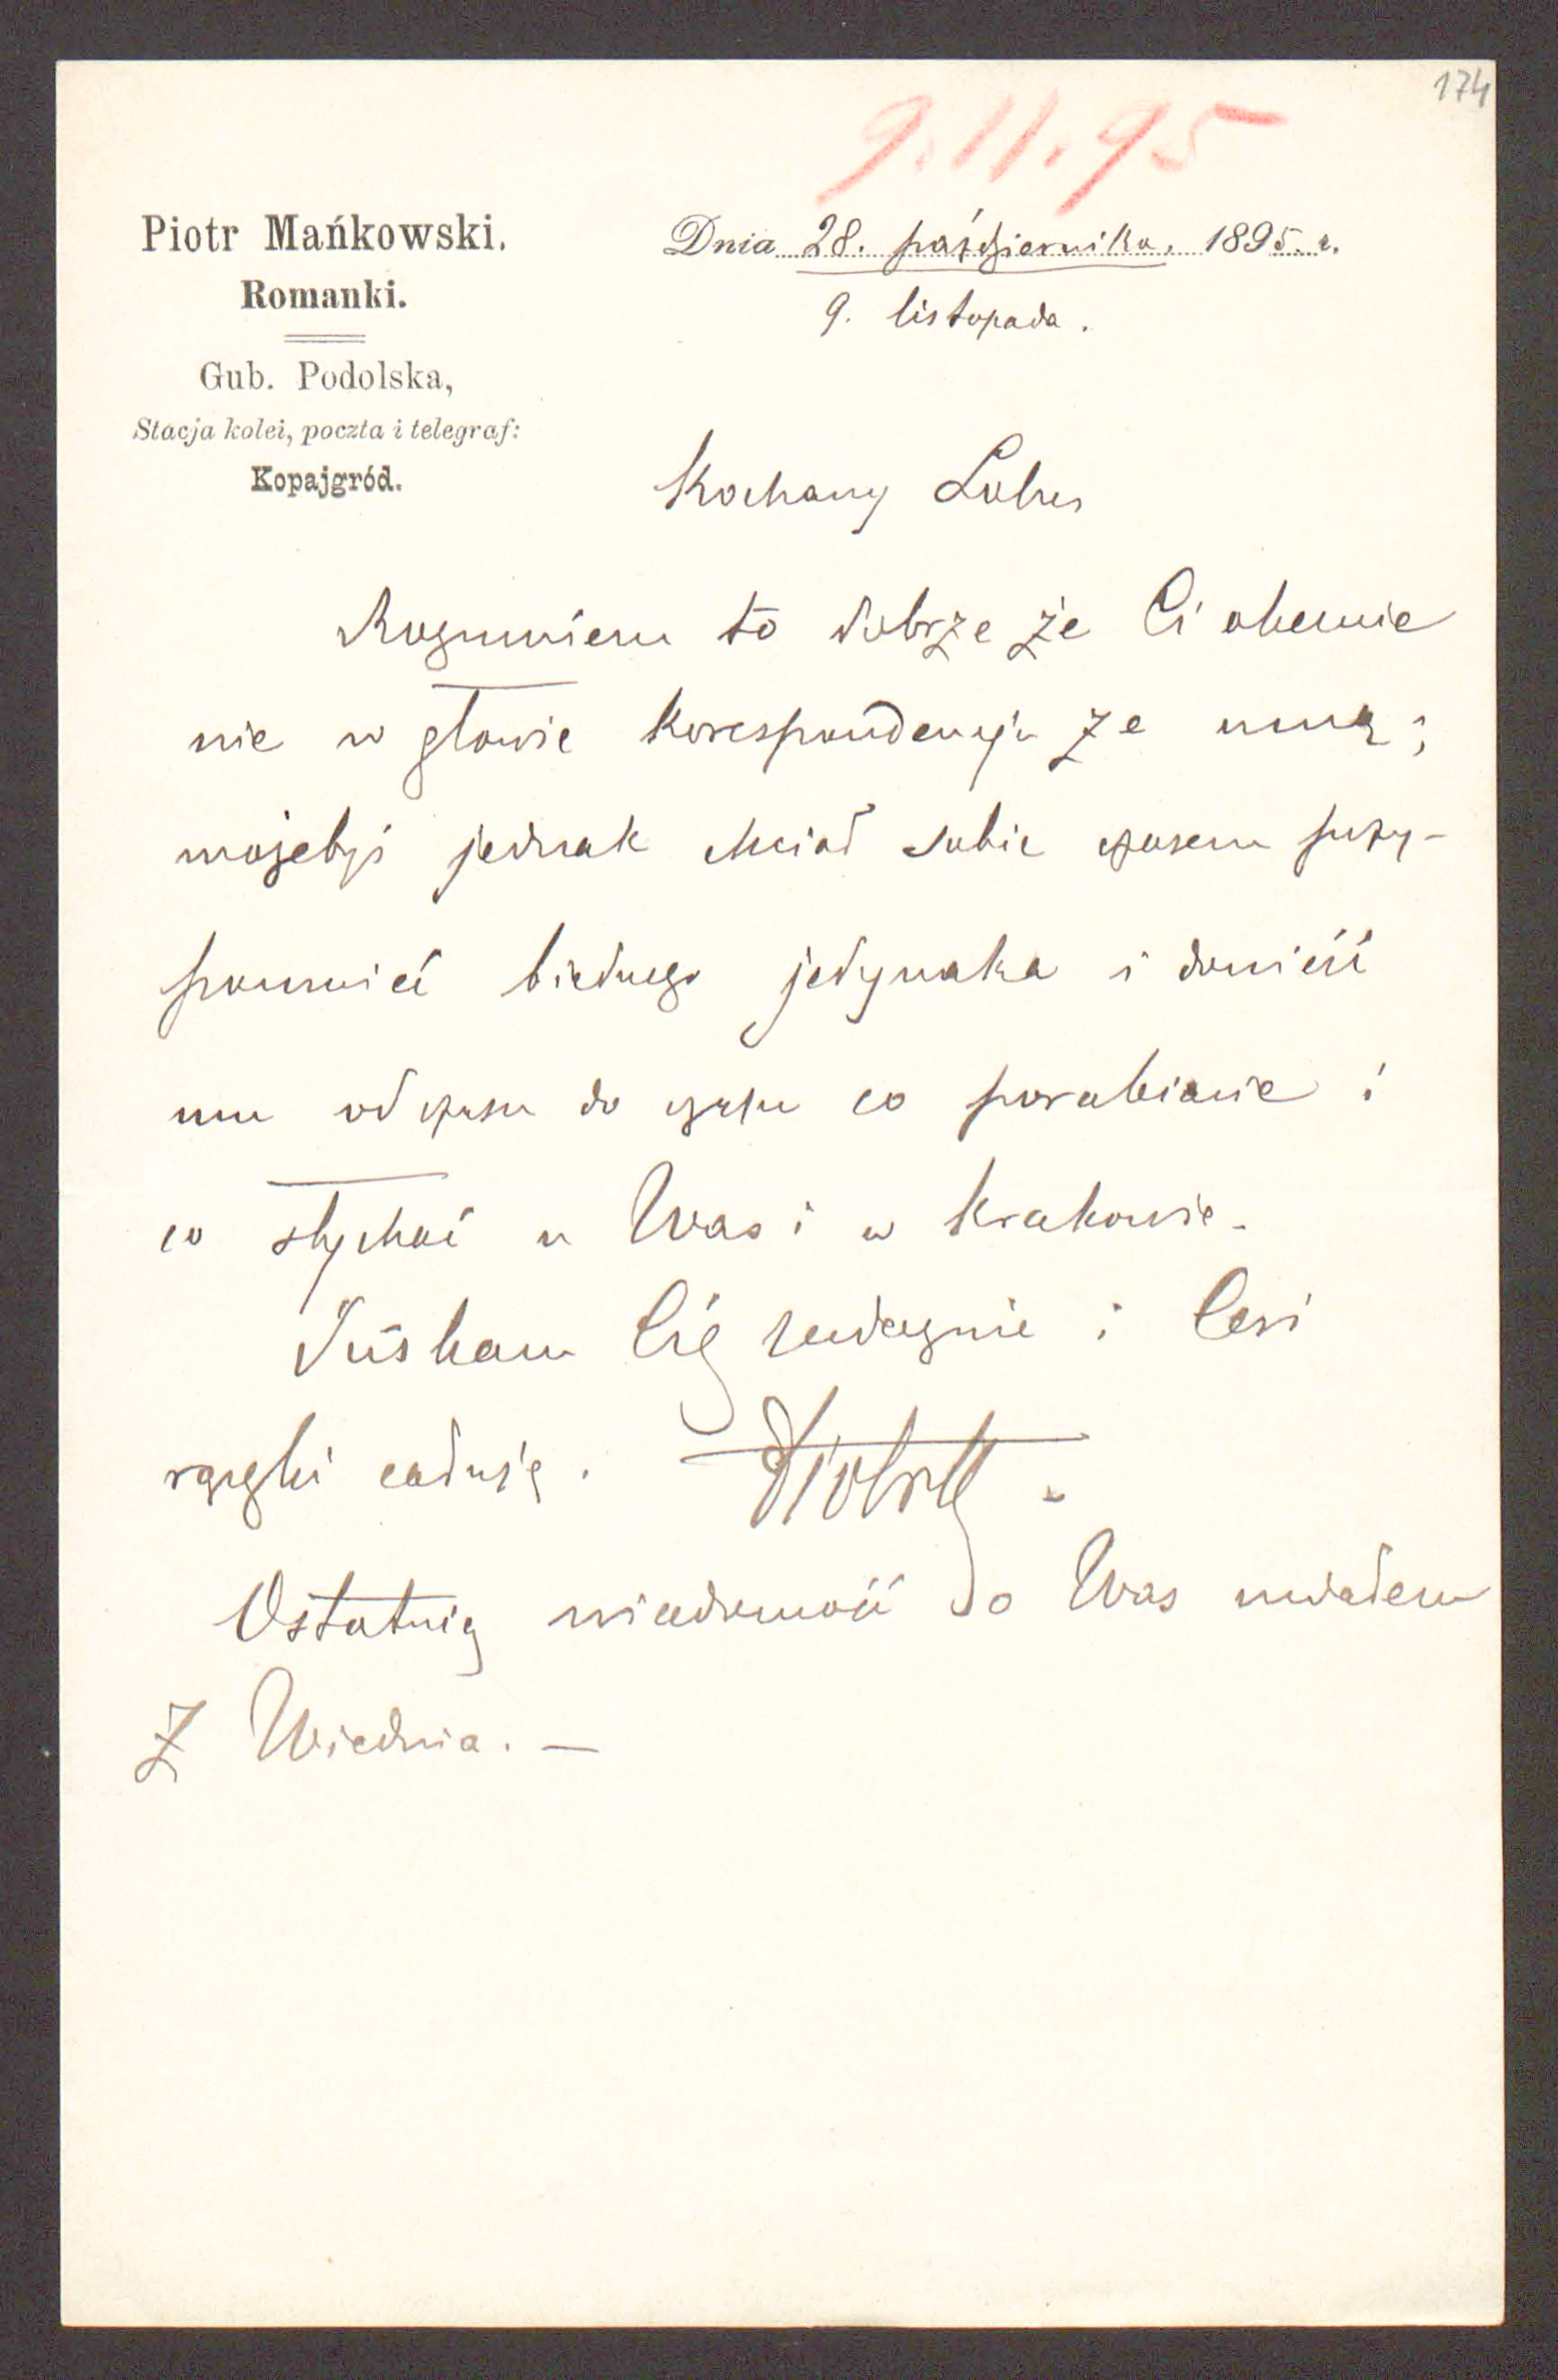 174
9.11.95
Piotr Mańkowski.
Romanki.
Gub. Podolska,
Stacja kolei, poczta i telegraf:
Kopajgród.
Dnia 28. października. 1895. r.
9. listopada.
Kochany
Rozumiem to dobrze że Ci obecnie
nie w głowie korespondencja ze mną;
możebyś jednak chciał sobie czasem przy-
pomnieć biednego jedynaka i donieść
mu od czasu do czasu co porabiacie i
co słychać u Was i w Krakowie.
Ściskam Cię serdecznie i Cesi
rączki całuję. Piotr.
Ostatnią wiadomość o Was miałem
z Wiednia. —